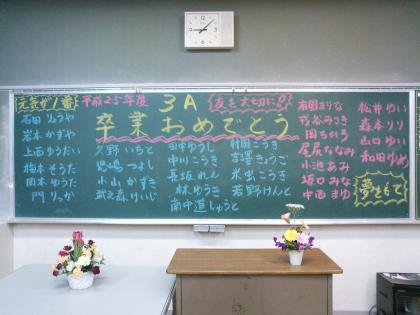 元気が1番
平成25年度
3A
友を大切に!!
卒業おめでとう
石田 りょうや
岩本 かずや
上西 ゆうだい
梅本 そうた
岡本 ゆうた
門 りっか
久野 いちと
児嶋 つよし
小山 かずき
武之森 けいじ
田中 ゆうし
中川 こうき
長坂 れん
林 ゆうき
南中道 しゅうと
村岡 こうき
吉澤 きょうご
米虫 こうき
若野 けんと
有園 まりな
戎谷 みさき
岡 ちひろ
尾尻 ななみ
小池 あみ
坂口 みな
中西 まゆ
松井 ゆい
森本 りり
山口 ゆい
和田 ゆめ
夢をもて!